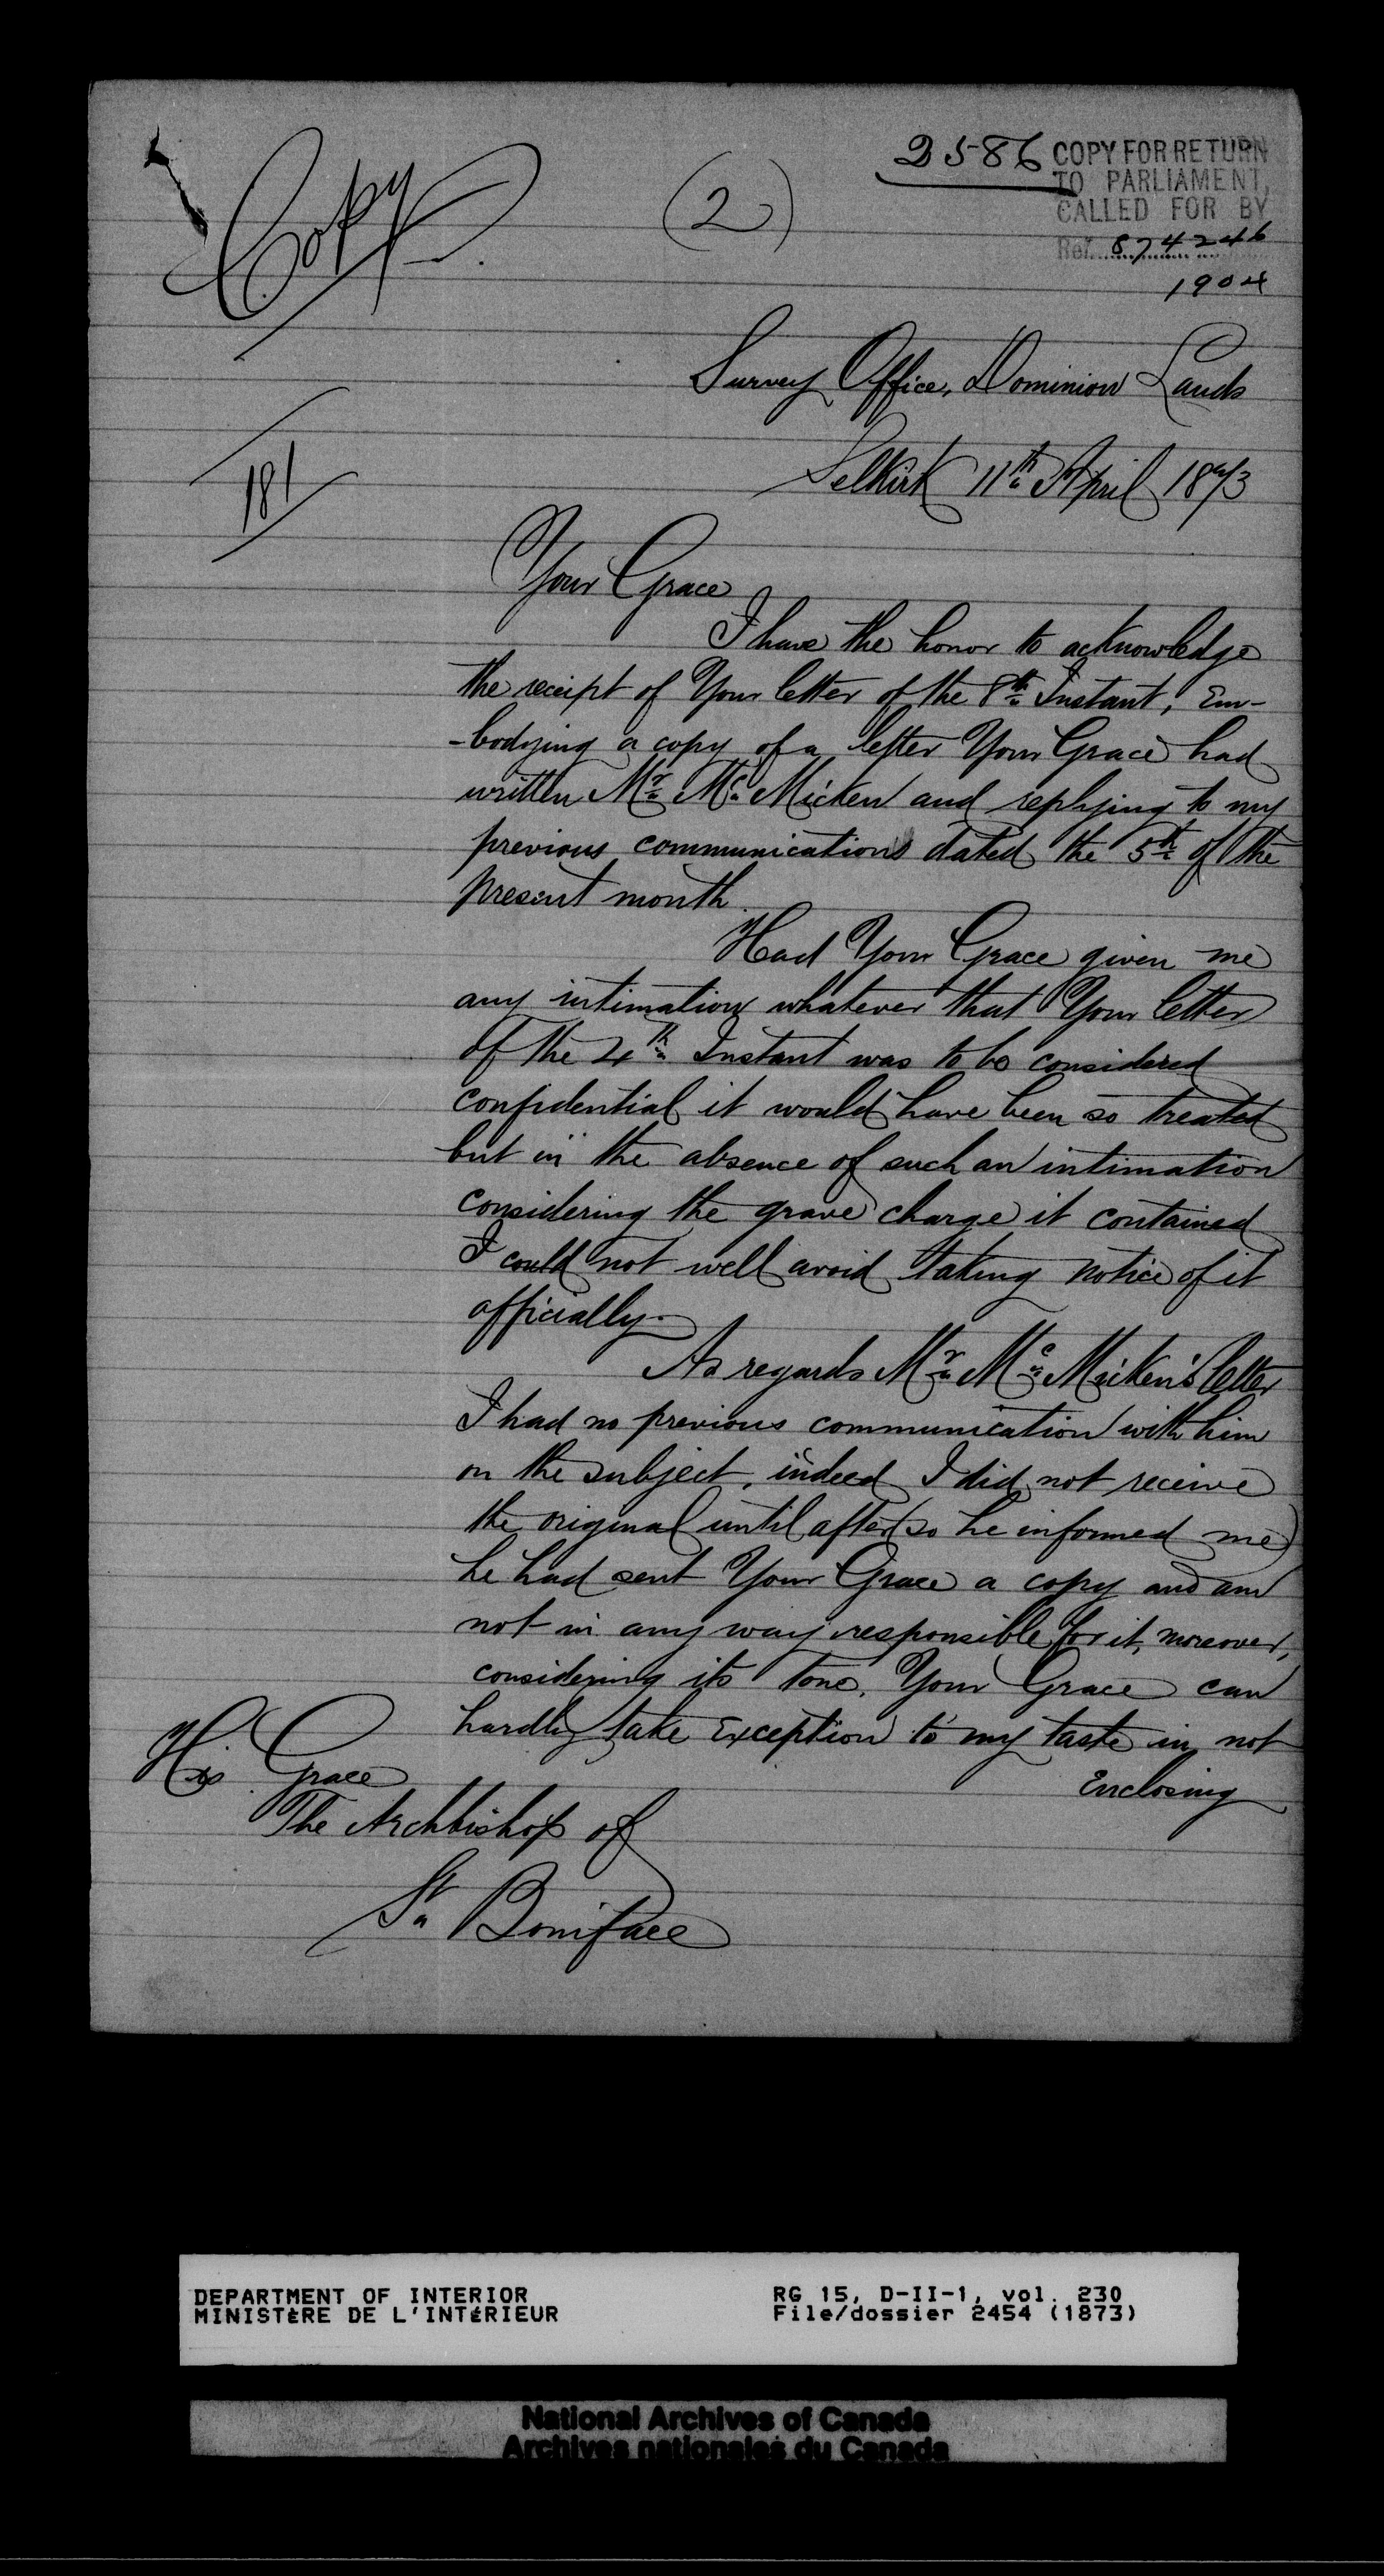 Copy
(2)
2586
COPY FOR RETURN
TO PARLIAMENT,
CALLED FOR BY
Ref. 874246
1904
Survey Office, Dominion Lands
Selkirk 11th April 1873
181
Your Grace
I have the honor to acknowledge
the receipt of Your letter of the 8th Instant, Em-
-bodying a copy of a letter Your Grace had
written Mr McMicken and replying to my
previous communications dated the 5th of the
present month.
Had Your Grace given me
any intimation whatever that Your letter
of the 4th Instant was to be considered
confidential it would have been so treated
but in the absence of such an intimation
considering the grave charge it contained
I could not well avoid taking notice of it
officially.
As regards Mr McMicken's letter
I had no previous communication with him
on the subject, indeed I did not receive
the original until after (so he informed me)
he had sent Your Grace a copy and am
not in any way responsible for it, moreover,
considering its tone, Your Grace can
hardly take Exception to my taste in not
Enclosing
His Grace
The Archbishop of
St Boniface
DEPARTMENT OF INTERIOR
MINISTÈRE DE L'INTÉRIEUR
RG 15, D-II-1, vol. 230
File/dossier 2454 (1873)
National Archives of Canada
Archives nationales du Canada